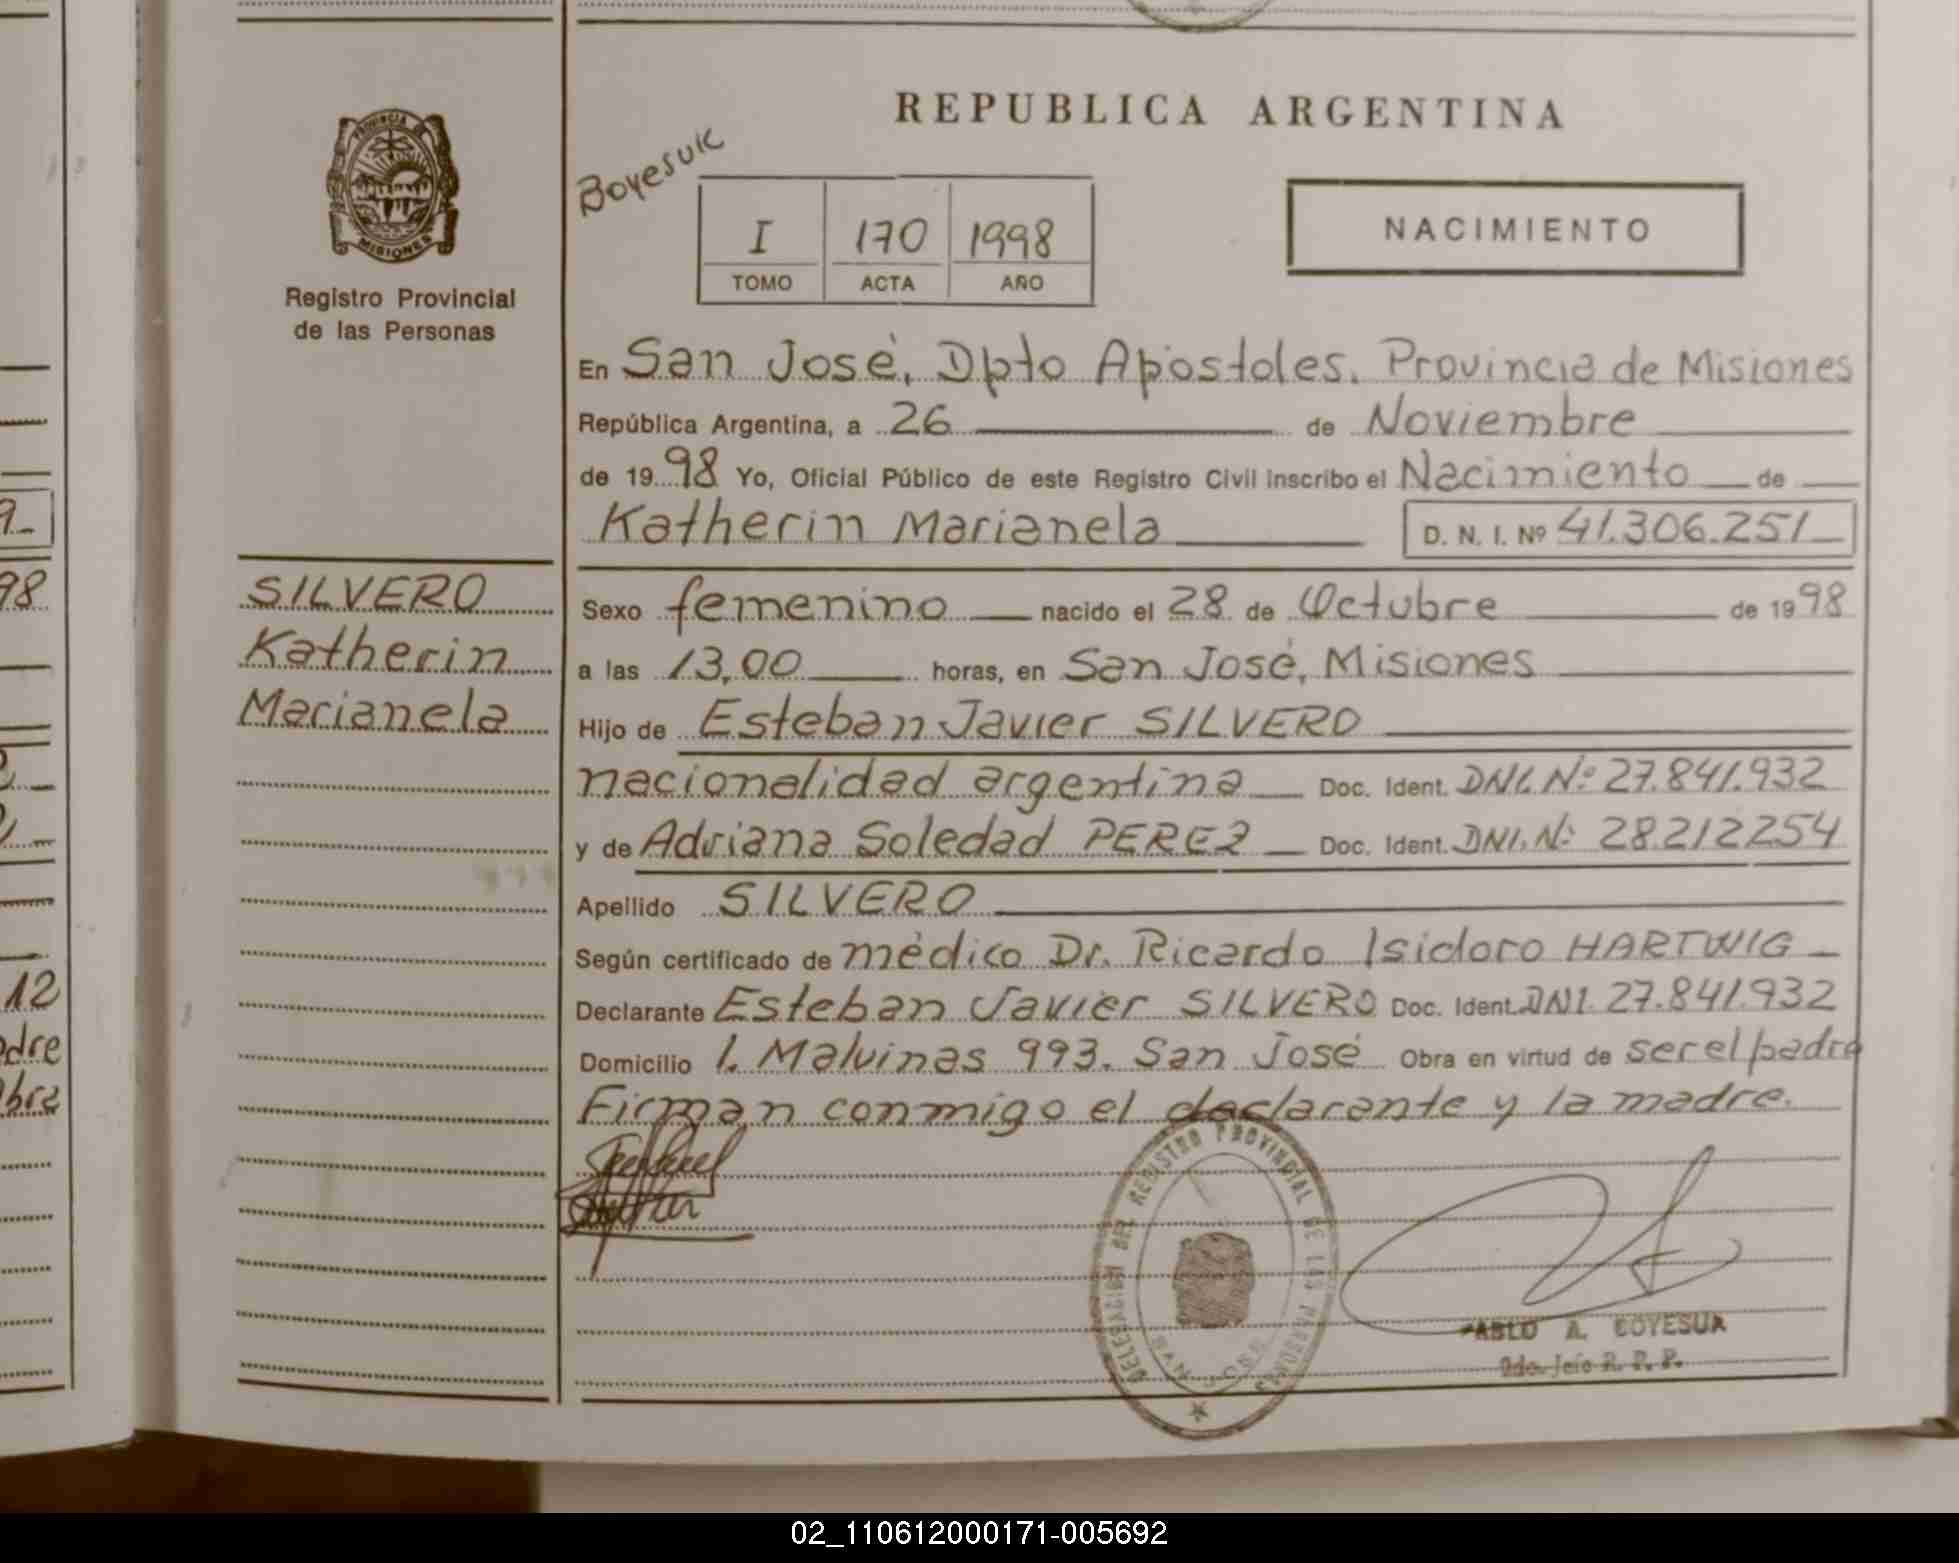 REPUBLICA ARGENTINA
PROVINCIA DE
MISIONES
Registro Provincial
de las Personas
Boyesuk
I 170 1998
TOMO ACTA AÑO
NACIMIENTO
En San José, Dpto Apóstoles. Provincia de Misiones
República Argentina, a 26 de Noviembre
de 1998 Yo, Oficial Público de este Registro Civil inscribo el Nacimiento de
Katherin Marianela D. N. I. Nº 41.306.251
SILVERO
Katherin
Marianela
Sexo femenino nacido el 28 de Octubre de 1998
a las 13,00 horas, en San José, Misiones
Hijo de Esteban Javier SILVERO
nacionalidad argentina Doc. Ident. DNI. Nº 27.841.932
y de Adriana Soledad PEREZ Doc. Ident. DNI. Nº 28.212254
Apellido SILVERO
Según certificado de médico Dr. Ricardo Isidoro HARTWIG
Declarante Esteban Javier SILVERO Doc. Ident. DNI. 27.841.932
Domicilio I. Malvinas 993. San José Obra en virtud de ser el padre
Firman conmigo el declarante y la madre.
DELEGACION DEL REGISTRO PROVINCIAL DE LAS PERSONAS
SAN JOSE
PABLO A. BOYESUK
9-
98
12
adre
02_110612000171-005692